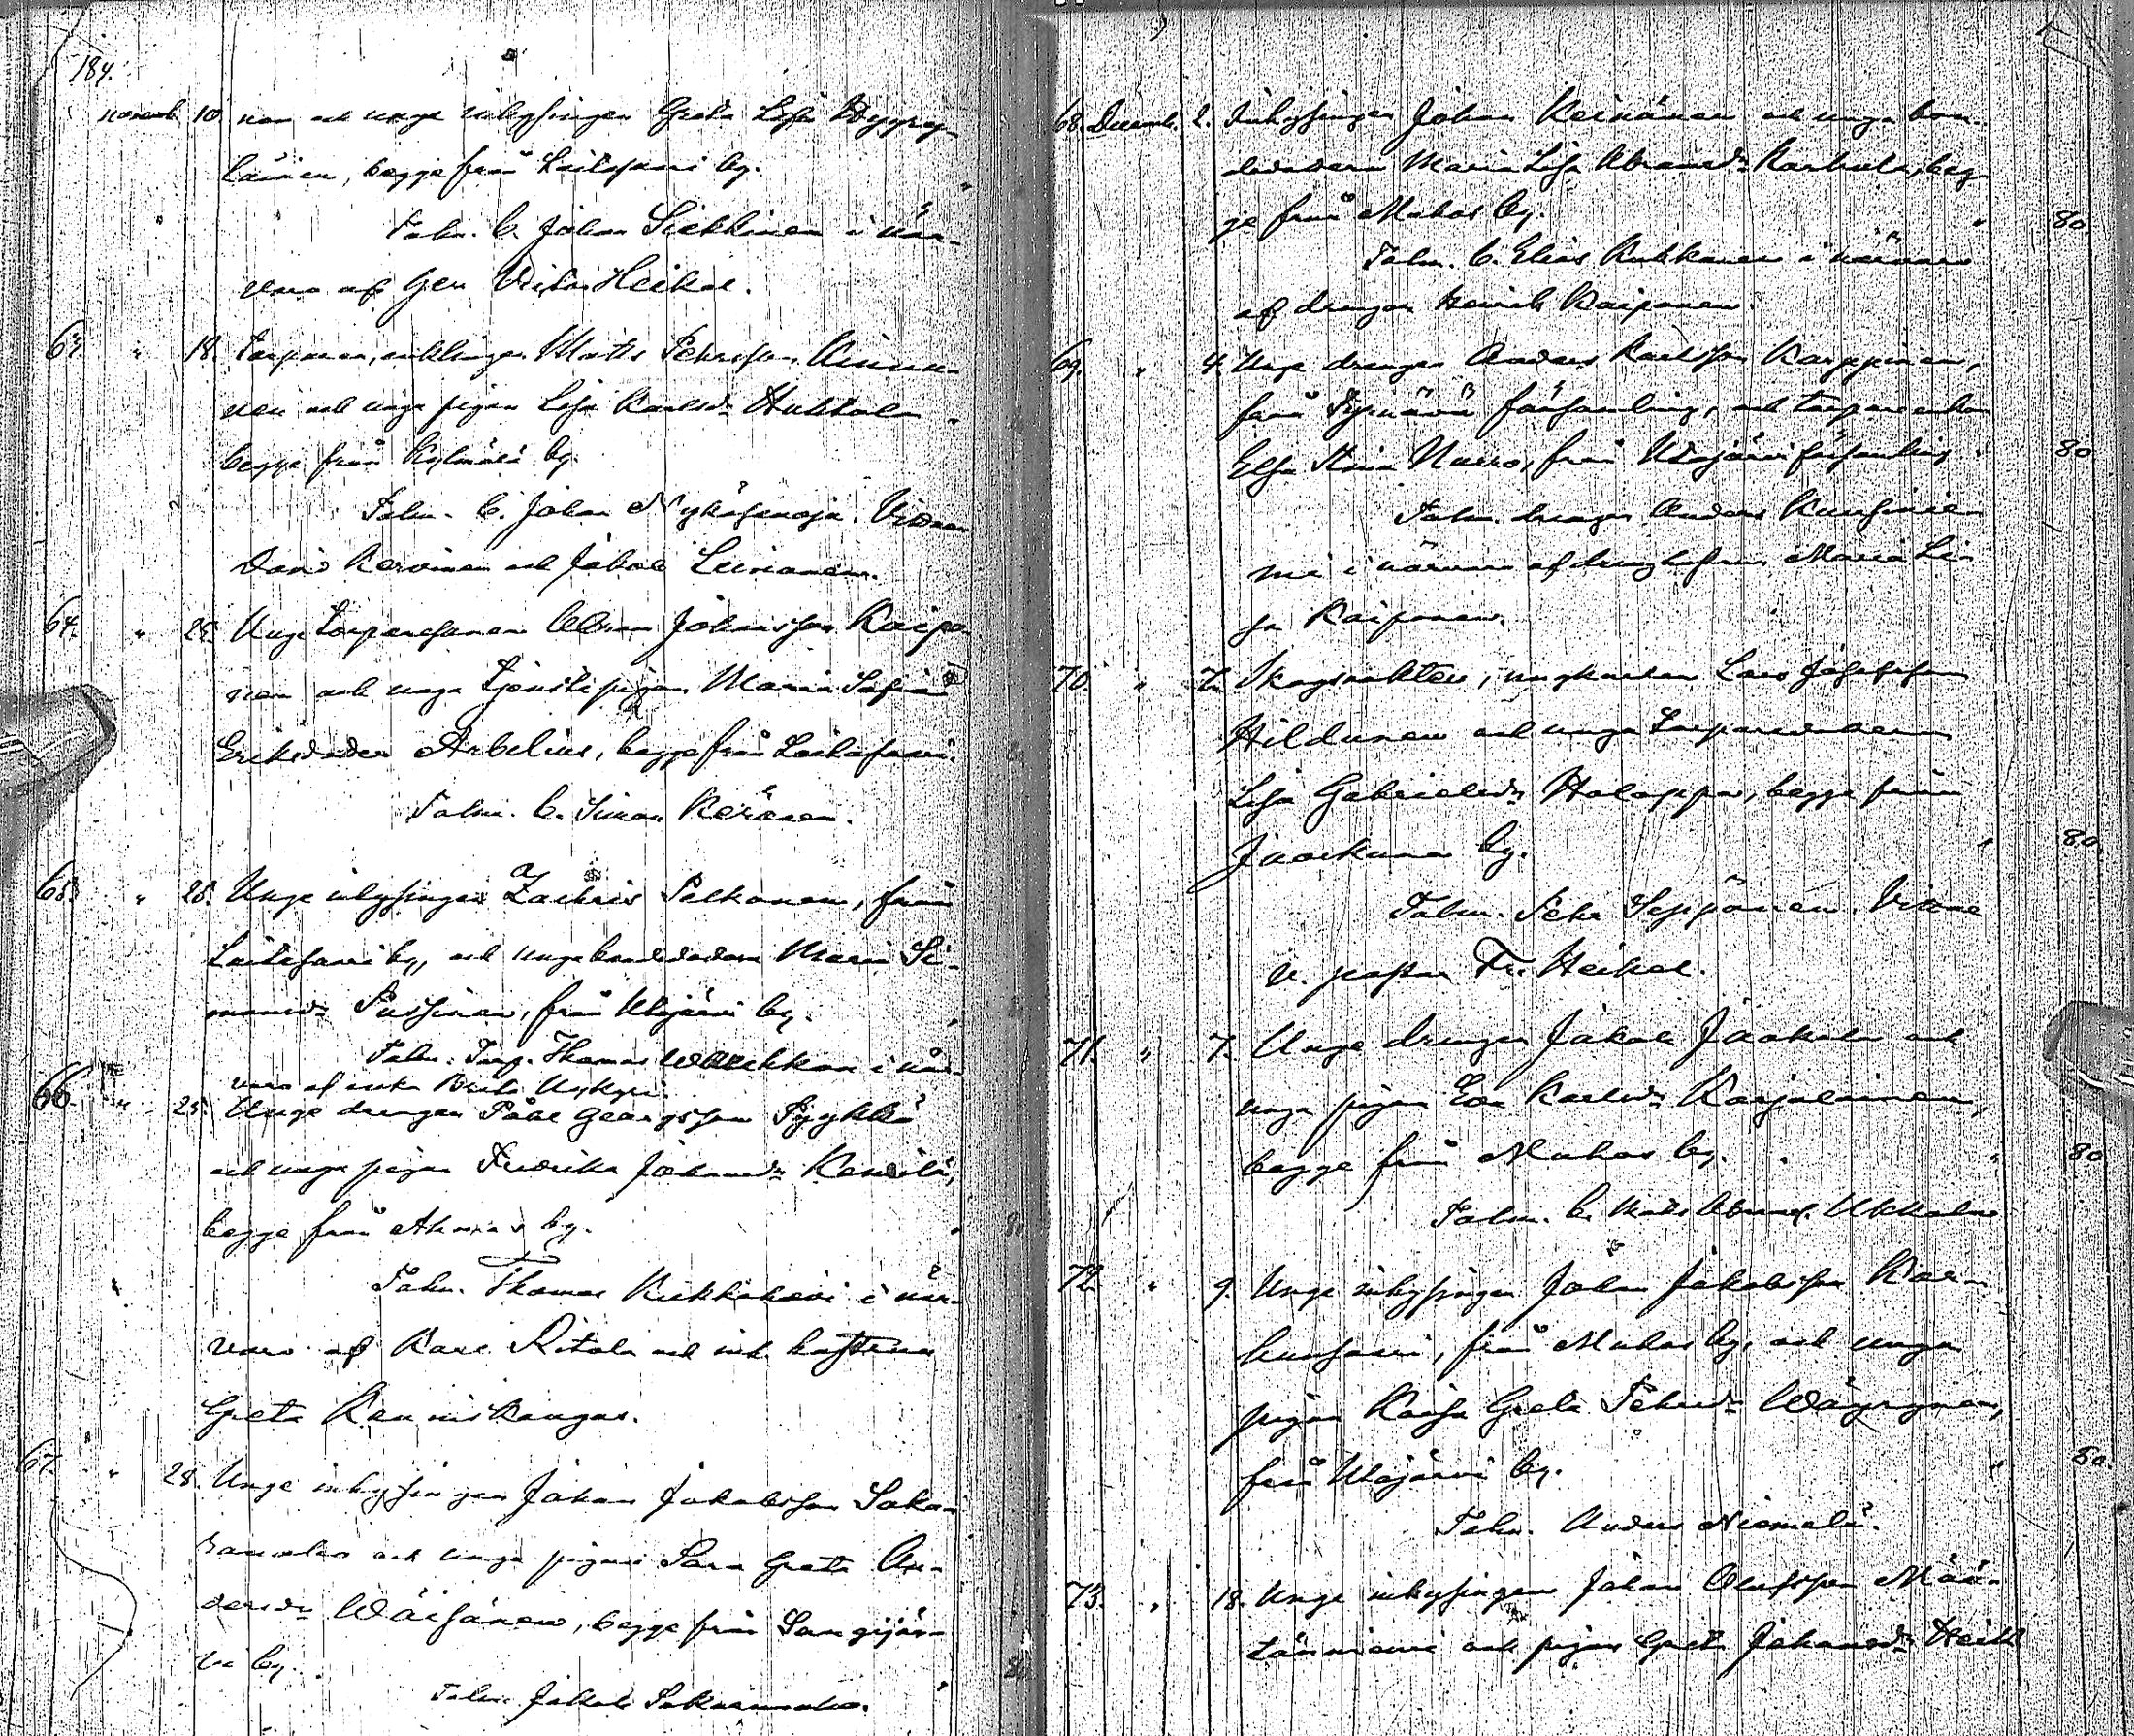 184.
novemb. 10 nen och unga inhysingen Greta Lisa Kyyrö-
läinen, begge från Laitasaari by.
Talm. b. Johan Siekkinen i när-
varo af Gev. Vict. Heikel.
63. " 18. Torparen, enklingen Matts Pehrsson Ainu-
nen och unga pigan Lisa Karlsd:r Huttola
begge från Kylmälä by.
Talm. b. Johan Nykäsenoja. Vidnen
David Kervinen och Jakob Leinonen.
64. " 25. Unge torparesonen Abram Johansson Kaipo-
nen och unga tjenstepigan Maria Sofia
Eriksdoter Arbelius, begge från Laitasaari.
Talm. b. Simon Keränen.
65. " 25. Unge inhysingen Zachris Pelkonen, från
Laitasaari by, och unga bondedotern Maria Si-
monsd:r Pussinen, från Utajärvi by.
Talm. Torp. Thomas i när-
varo af enka Brita
66. " 25. Unge drengen Påål Georgsson Pyykkö
och unga pigan Fredrika Johansd:r Kestilä,
begge från Ahmas by. " 80.
Talm. Thomas Kukkohovi i när-
varo af Karl Ritola och inh. hustrun
Greta Kauniskangas.
67. " 28. Unge inhysingen Johan Jakobsson Saka-
ranaho och unga pigan Sara Greta An-
dersd:r Wäisänen, begge från Sangijär-
vi by. " 80.
Talm. Jakob Sakaranaho.
68. Decemb. 2. Inhysingen Johan Keinänen och unga bon-
dedotern Maria Lisa Abramsd:r Karhula, beg-
ge från Muhos by. " 80.
Talm. b. Elias Kukkonen i närvaro
af drengen Henrik Kaiponen.
69. " 4. Unge drengen Anders Karlsson Karppinen,
från Tyrnävä församling, och torpareenkan
Elsa Stina Nurro, från Utajärvi församling " 80
Talm. drengen Anders Kuusinie-
mi i närvaro af dreng hustrun Maria Li-
sa Kaiponen.
70. " 7. Skogsvaktten, ungkarlen Lars Josefsson
Hildunen och unga torparedotern
Lisa Gabrielsd:r Holappa, begge från
Juorkuna by. " 80.
Talm. Pehr Seppönen. Vidne
v. pastor Fr. Heikel.
71. " 7. Unge drengen Jakob Jaakola och
unga pigan Eva Karlsd:r Karjalainen,
begge från Muhos by. " 80
Talm. b. Matts Abrams. Ukkola
72. " 9. Unge inhysingen Johan Jakobsson Kor-
kuusaari, från Muhos by, och unga
pigan Kaisa Greta Pehrsd:r Wäyrynen,
från Utajärvi by. " 80.
Talm. Anders Niemelä.
73. " 18. Unge inhysingen Johan Olofsson Mää-
täniemi och pigan Greta Johansd:r Heik